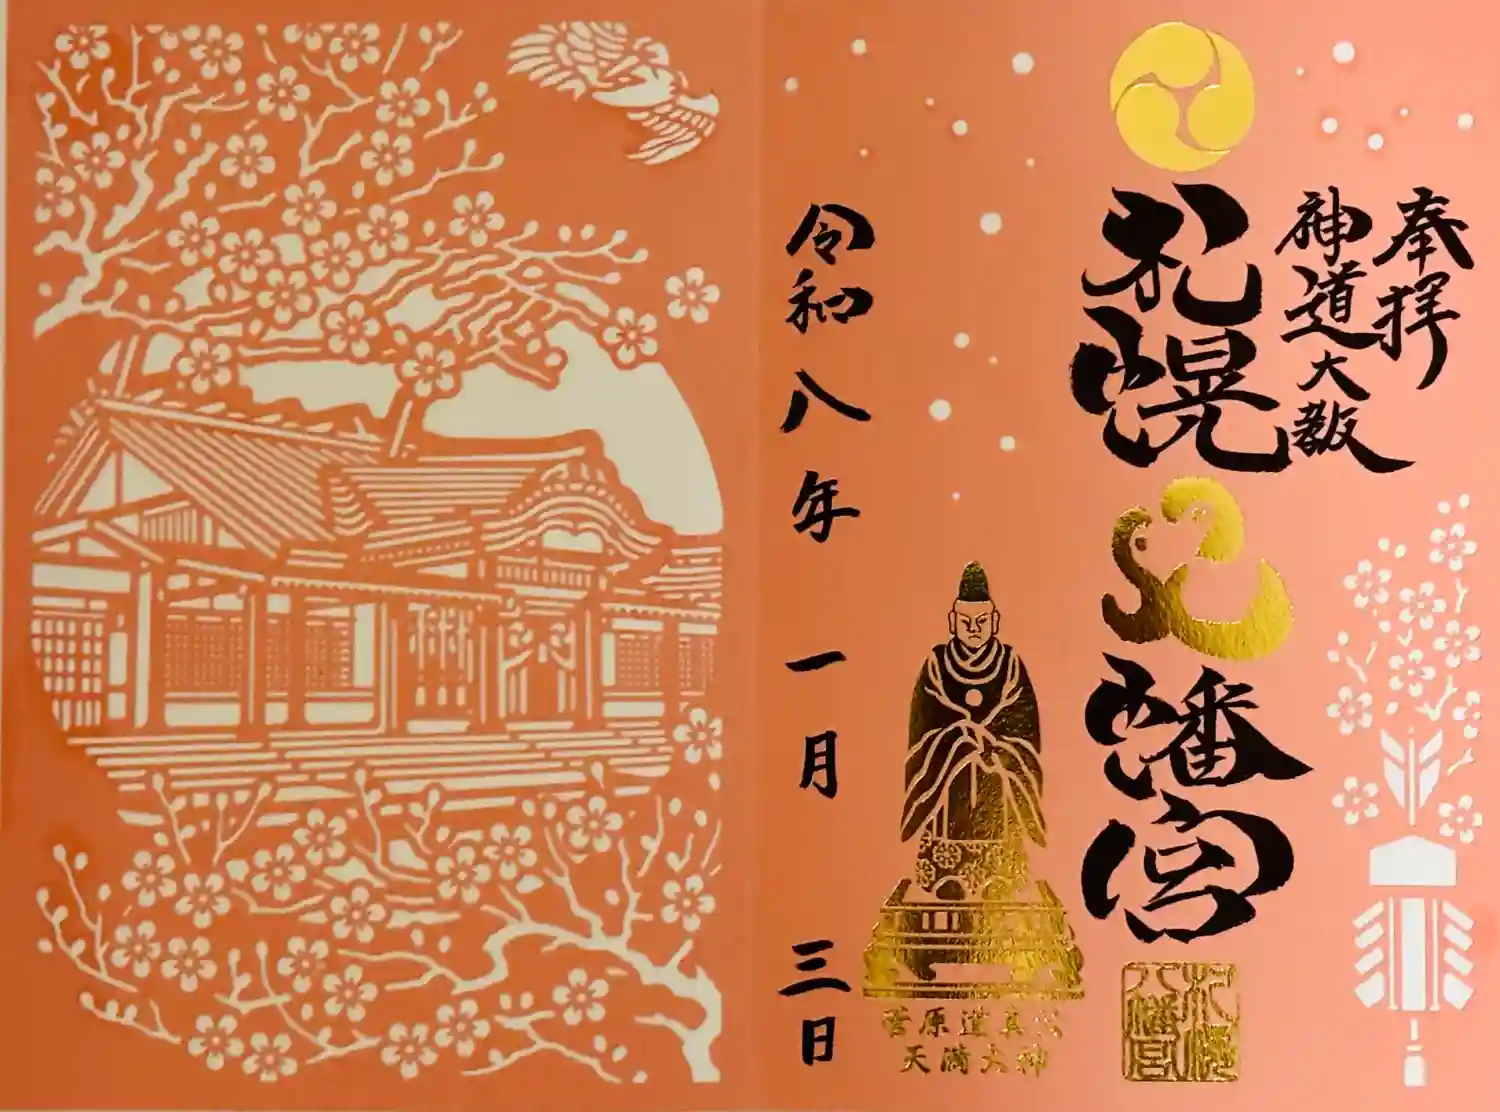 奉拝
神道大教
札幌八幡宮
札幌八幡宮
菅原道真公
天満大神
令和八年 一月 三日